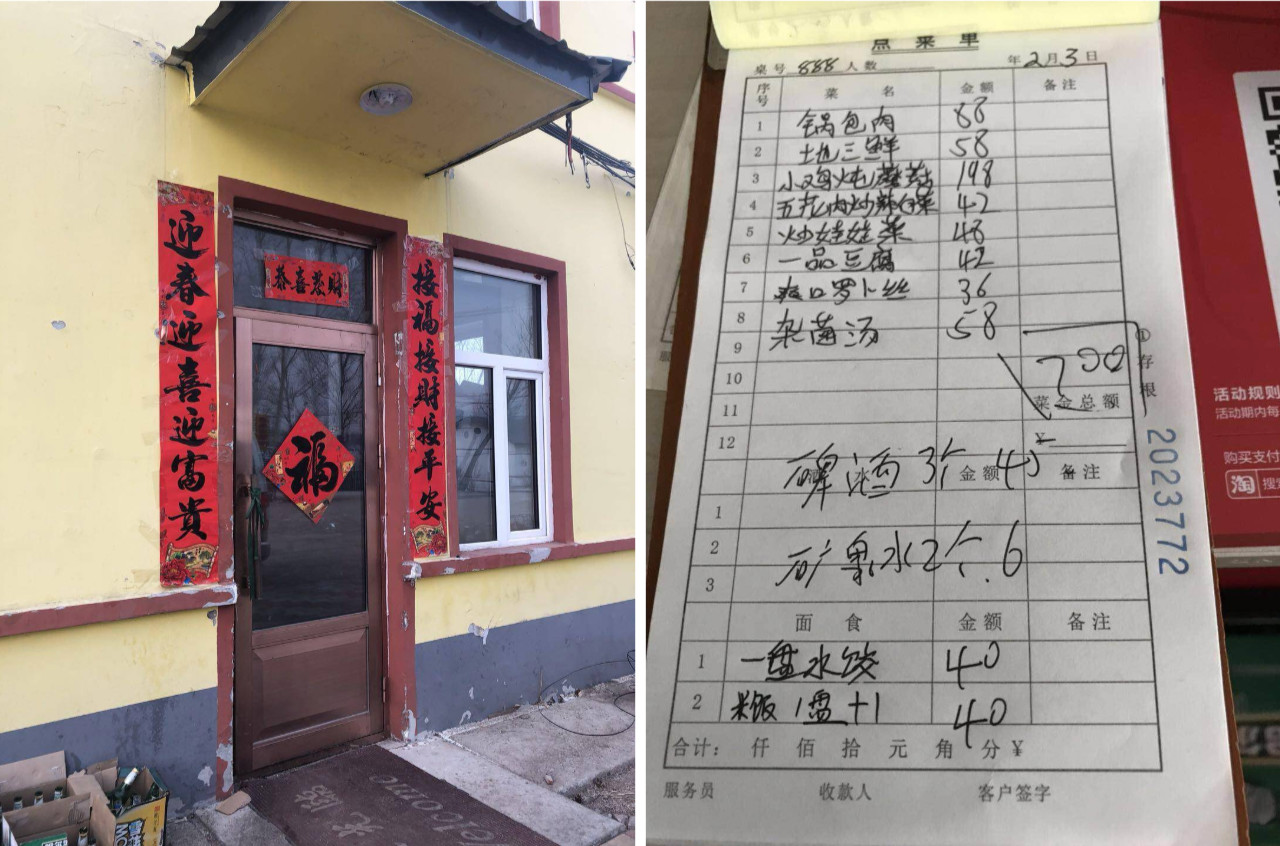 迎春迎喜迎富贵
恭喜發财
接福接财接平安
福
光臨
Welcome
点菜单
桌号 888 人数 年2月3日
序号 菜名 金额 备注
1 锅包肉 88
2 地三鲜 58
3 小鸡炖蘑菇 198
4 五花肉炒辣白菜 42
5 炒娃娃菜 48
6 一品豆腐 42
7 爽口罗卜丝 36
8 杂菌汤 58
9
10 700
11 菜金总额
12 ¥
啤酒 3个 金额 45 备注
1
2 矿泉水2个 6
3
面食 金额 备注
1 一盘水饺 40
2 米饭1盘+1 40
合计: 仟佰拾元角分¥
服务员 收款人 客户签字
①存根
2023772
活动规则
活动期内每
购买支付
淘 搜索